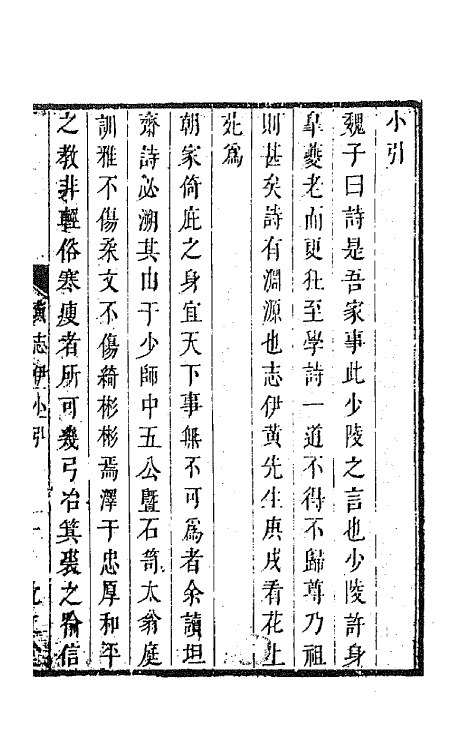 小引
魏子曰詩是吾家事此少陵之言也少陵許身
皐夔老而更狂至學詩一道不得不歸尊乃祖
則甚矣詩有淵源也志伊黃先生庚戌看花上
苑爲
朝家倚庇之身宜天下事無不可爲者余讀坦
齋詩必溯其由于少師中五公暨石笥太翁庭
訓雅不傷柔文不傷綺彬彬焉澤于忠厚和平
之教非輕俗寒瘦者所可幾弓冶箕裘之喻信
黃志伊小引
一